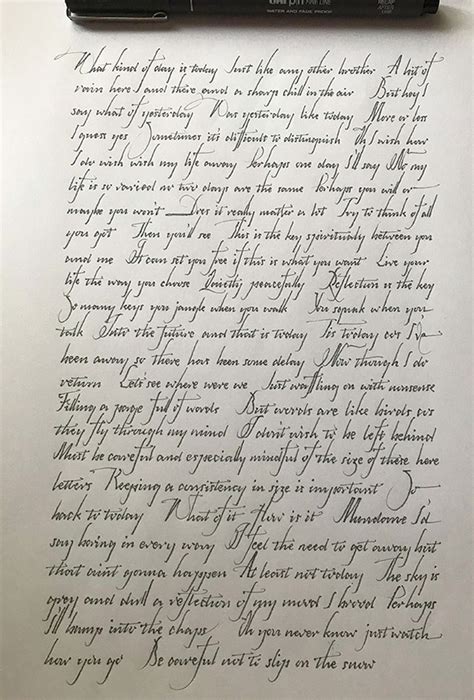 WATER AND FADE PROOF
RECAP
AFTER
USE
What kind of day is today Just like any other brother A bit of
rain here I and there and a sharp chill in the air But hey I
say what of yesterday Was yesterday like today More or less
I guess yes Sometimes it's difficult to distinguish Oh I wish how
I do wish wish my life away Perhaps one day I'll say No my
life is so varied no two days are the same Perhaps you will or
maybe you won't Does it really matter a lot Try to think of all
you got Then you'll see This is the key spiritually between you
and me It can set you free if this is what you want Live your
life the way you choose Quietly peacefully Reflection is the key
So many keys you jangle when you walk You squeak when you
talk Into the future and that is today Tis today cos I've
been away so there has been some delay Now though I do
return Let's see where were we Just waffling on with nonsense
Filling a page full of words But words are like birds cos
they fly through my mind I don't wish to be left behind
Must be careful and especially mindful of the size of these here
letters Keeping a consistency in size is important So
back to today What of it How is it Mundane I'd
say boring in every way I feel the need to get away but
that aint gonna happen At least not today The sky is
grey and dull a reflection of my mood I brood Perhaps
I'll bump into the chaps Oh you never know just watch
how you go Be careful not to slip on the snow